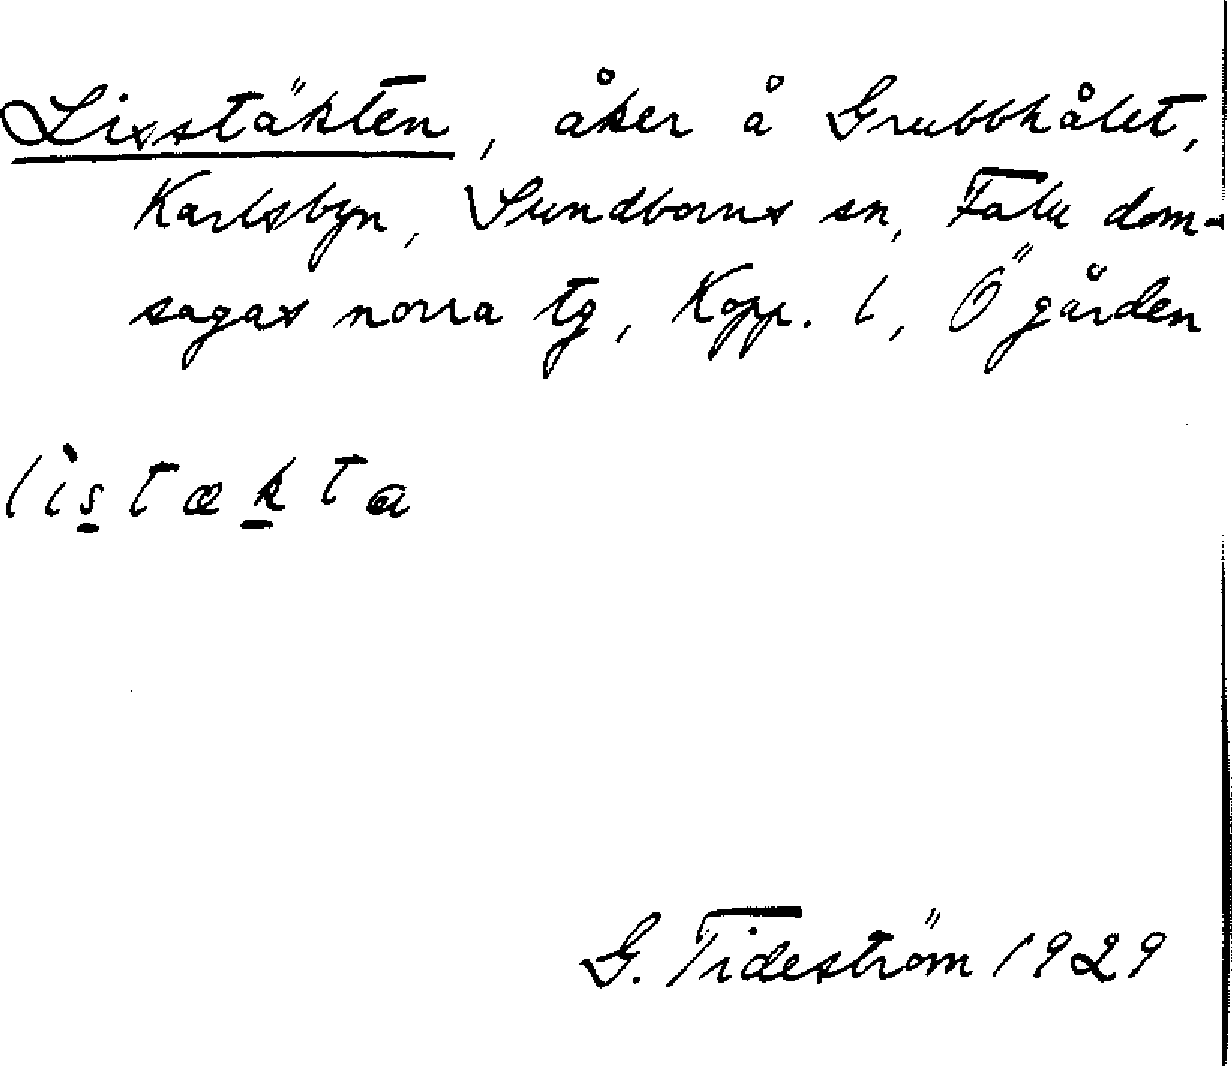 Lisstäkten, åker å Grubbhålet,
Karlsbyn, Sundborns sn, Falu dom-
sagas norra tg, Kopp. l, Ögården
lìs̲tæk̲ta
G. Tideström 1929